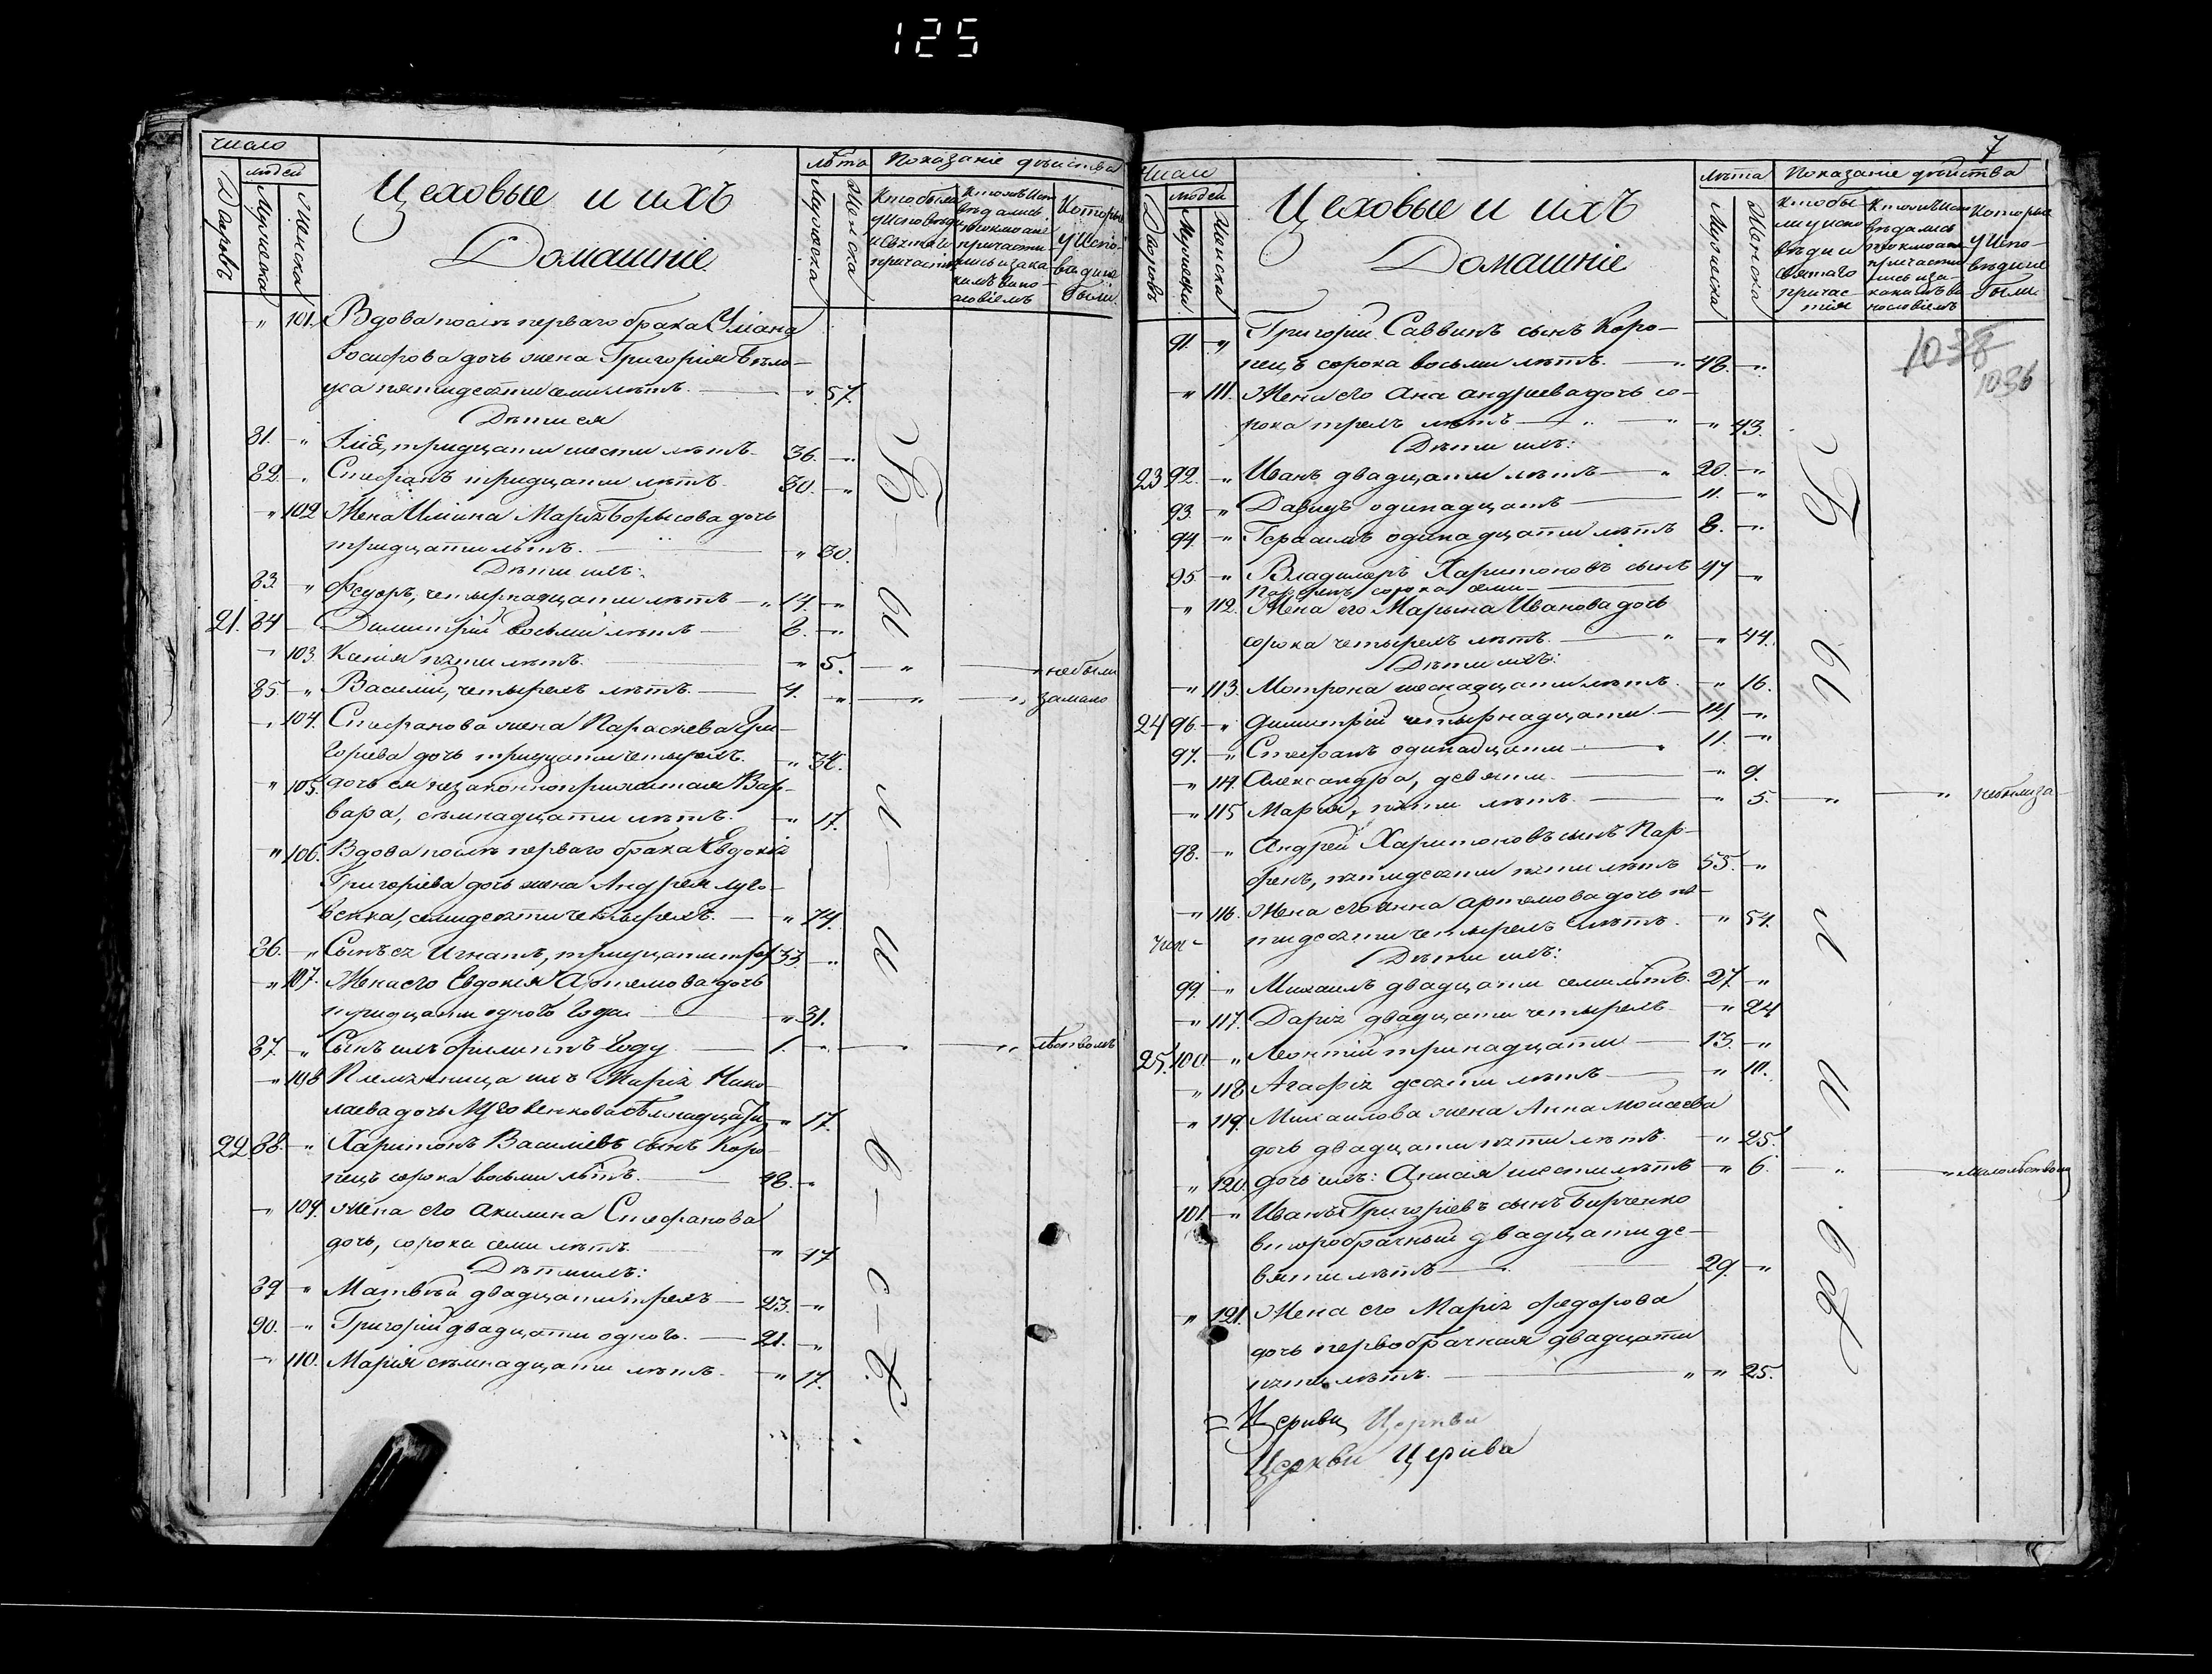 125
Число
людей
Дворовъ
Мужеска
Женска
Цеховые и ихъ
Домашніе.
лѣта
Мужеска
Женска
Показаніе дѣйства
101. Вдова послѣ перваго брака
дочь жена Григорія Бѣло-
уса пятидесяти семи лѣтъ. 57.
Дѣти ея
81. тридцати шести лѣтъ. 36.
82. Стефанъ тридцати лѣтъ. 30.
102 Жена Марія Борисова дочь
тридцати лѣтъ. 30.
Дѣти ихъ:
83. Феодръ, четырнадцати лѣтъ 14.
21. 84 Димитрій восьми лѣтъ 8.
103. Ксенія пяти лѣтъ. 5. небыли
85. Василій, четырехъ лѣтъ. 4. замало
104. Стефанова жена Параскева Гри-
горіева дочь тридцати четырехъ. 34.
105. дочь ея незаконноприжитая Вар-
вара, семнадцати лѣтъ. 17.
106. Вдова послѣ перваго брака Евдокія
Григоріева дочь жена Андрея Луго-
венка, семидесяти четырехъ. 74.
86. Сынъ ея Игнатъ, тридцати трех 33.
107. Жена его Евдокія Артемова дочь
тридцати одного года 31.
87. Сынъ ихъ Филиппъ году 1. лѣтствомъ
108 Племянница ихъ Марія Нико-
лаева дочь Луговенкова семнадцати 17.
22 88. Харитонъ Василіевъ сынъ Коро-
пецъ сорока восьми лѣтъ. 48.
109. Жена его Акилина Стефанова
дочь, сорока семи лѣтъ. 47
Дѣти ихъ:
89 Матвѣй двадцати трехъ 23.
90. Григорій двадцати одного. 21.
110. Марія семнадцати лѣтъ. 17.
Б – ы – л – и – в – с – ѣ
7
Число
людей
Дворовъ
Мужеска
Женска
Цеховые и ихъ
Домашніе
лѣта
Мужеска
Женска
Показаніе дѣйства
1038
1036
91. Григорій Саввинъ сынъ Коро-
пецъ сорока восьми лѣтъ. 48.
111. Жена его Ана андреева дочь со-
рока трехъ лѣтъ 43.
Дѣти ихъ:
23 92. Иванъ двадцати лѣтъ 20.
93 Давидъ одинадцать 11.
94. Герасимъ одинадцати лѣтъ 8.
95 Владимеръ Харитоновъ сынъ 47
Парфенъ сорока семи
112. Жена его Марына Иванова дочь
сорока четырехъ лѣтъ. 44.
Дѣти ихъ:
113. Мотрона шеснадцати лѣтъ. 16.
24 96. Димитрій четырнадцати. 14.
97. Стефанъ одинадцати 11.
114. Александра, девяти. 9.
115 Марія, пяти лѣтъ. 5.
98. Андрей Харитоновъ сынъ Пар-
фенъ, пятидесяти пяти лѣтъ 55.
116. Жена его Анна артемова дочь пя-
тидесяти четырехъ лѣтъ. 54.
Дѣти ихъ:
99. Михаилъ двадцати семи лѣтъ. 27.
117. Дарія двадцати четырехъ 24
25. 100. Леонтій тринадцати 13.
118 Агафія десяти лѣтъ 10.
119. Михаилова жена Анна Моисеева
дочь двадцати пяти лѣтъ. 25.
120. дочь ихъ: шести лѣтъ 6. малолѣтствомъ
101. Иванъ Григоріевъ сынъ Бирченко
второбрачный двадцати де-
вяти лѣтъ 29.
121. Жена его Марія Федорова
дочь первобрачная двадцати
пяти лѣтъ. 25.
Б ы л и в сѣ
Церкви Церкви
Церкви Церкви